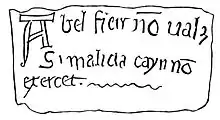 Abel fieri nō ualꝫ
Si malicia cayn nō
exercet.